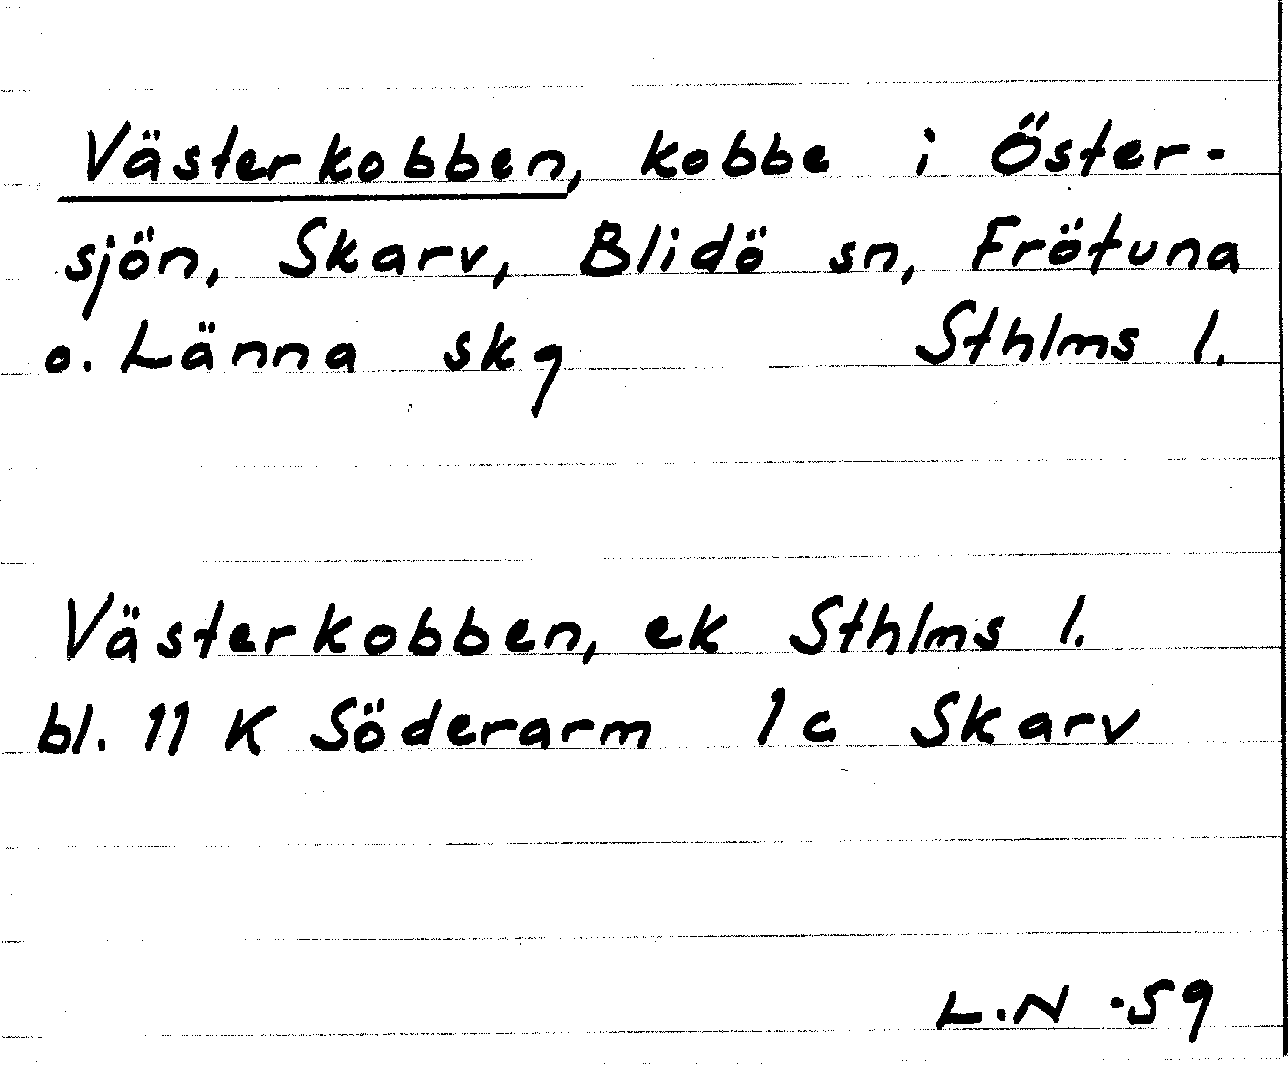 Västerkobben, kobbe i Öster-
sjön, Skarv, Blidö sn, Frötuna
o. Länna skg Sthlms l.
Västerkobben, ek Sthlms l.
bl. 11 K Söderarm 1c Skarv
L.N -59